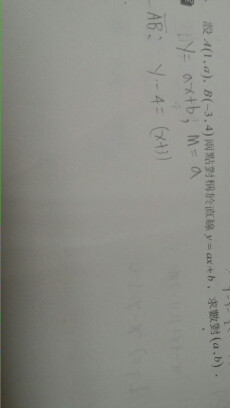 設A(1,a),B(-3,4)兩點對稱於直線y=ax+b,求數對(a,b)。
y=ax+b; m=a
AB: y-4=(x+3)